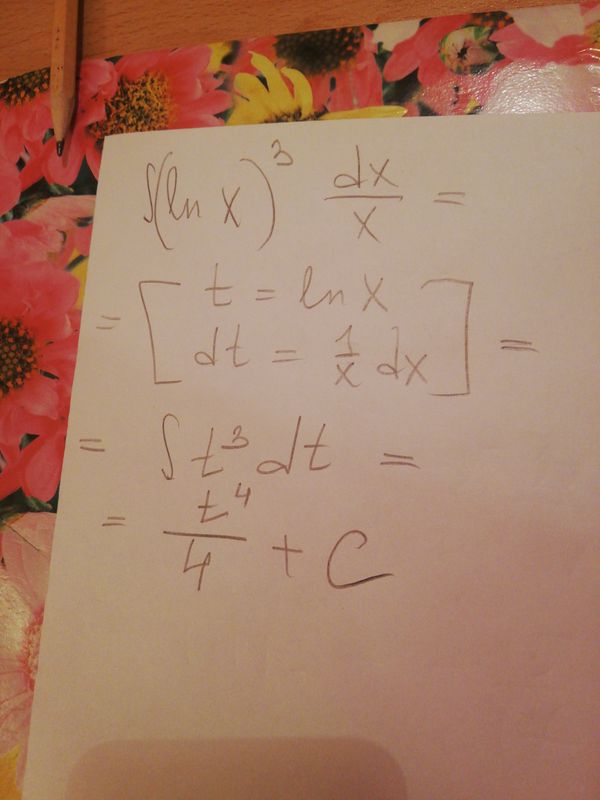 ∫(ln x)³ dx/x =
= [ t = ln x
dt = 1/x dx ] =
= ∫ t³ dt =
= t⁴/4 + C